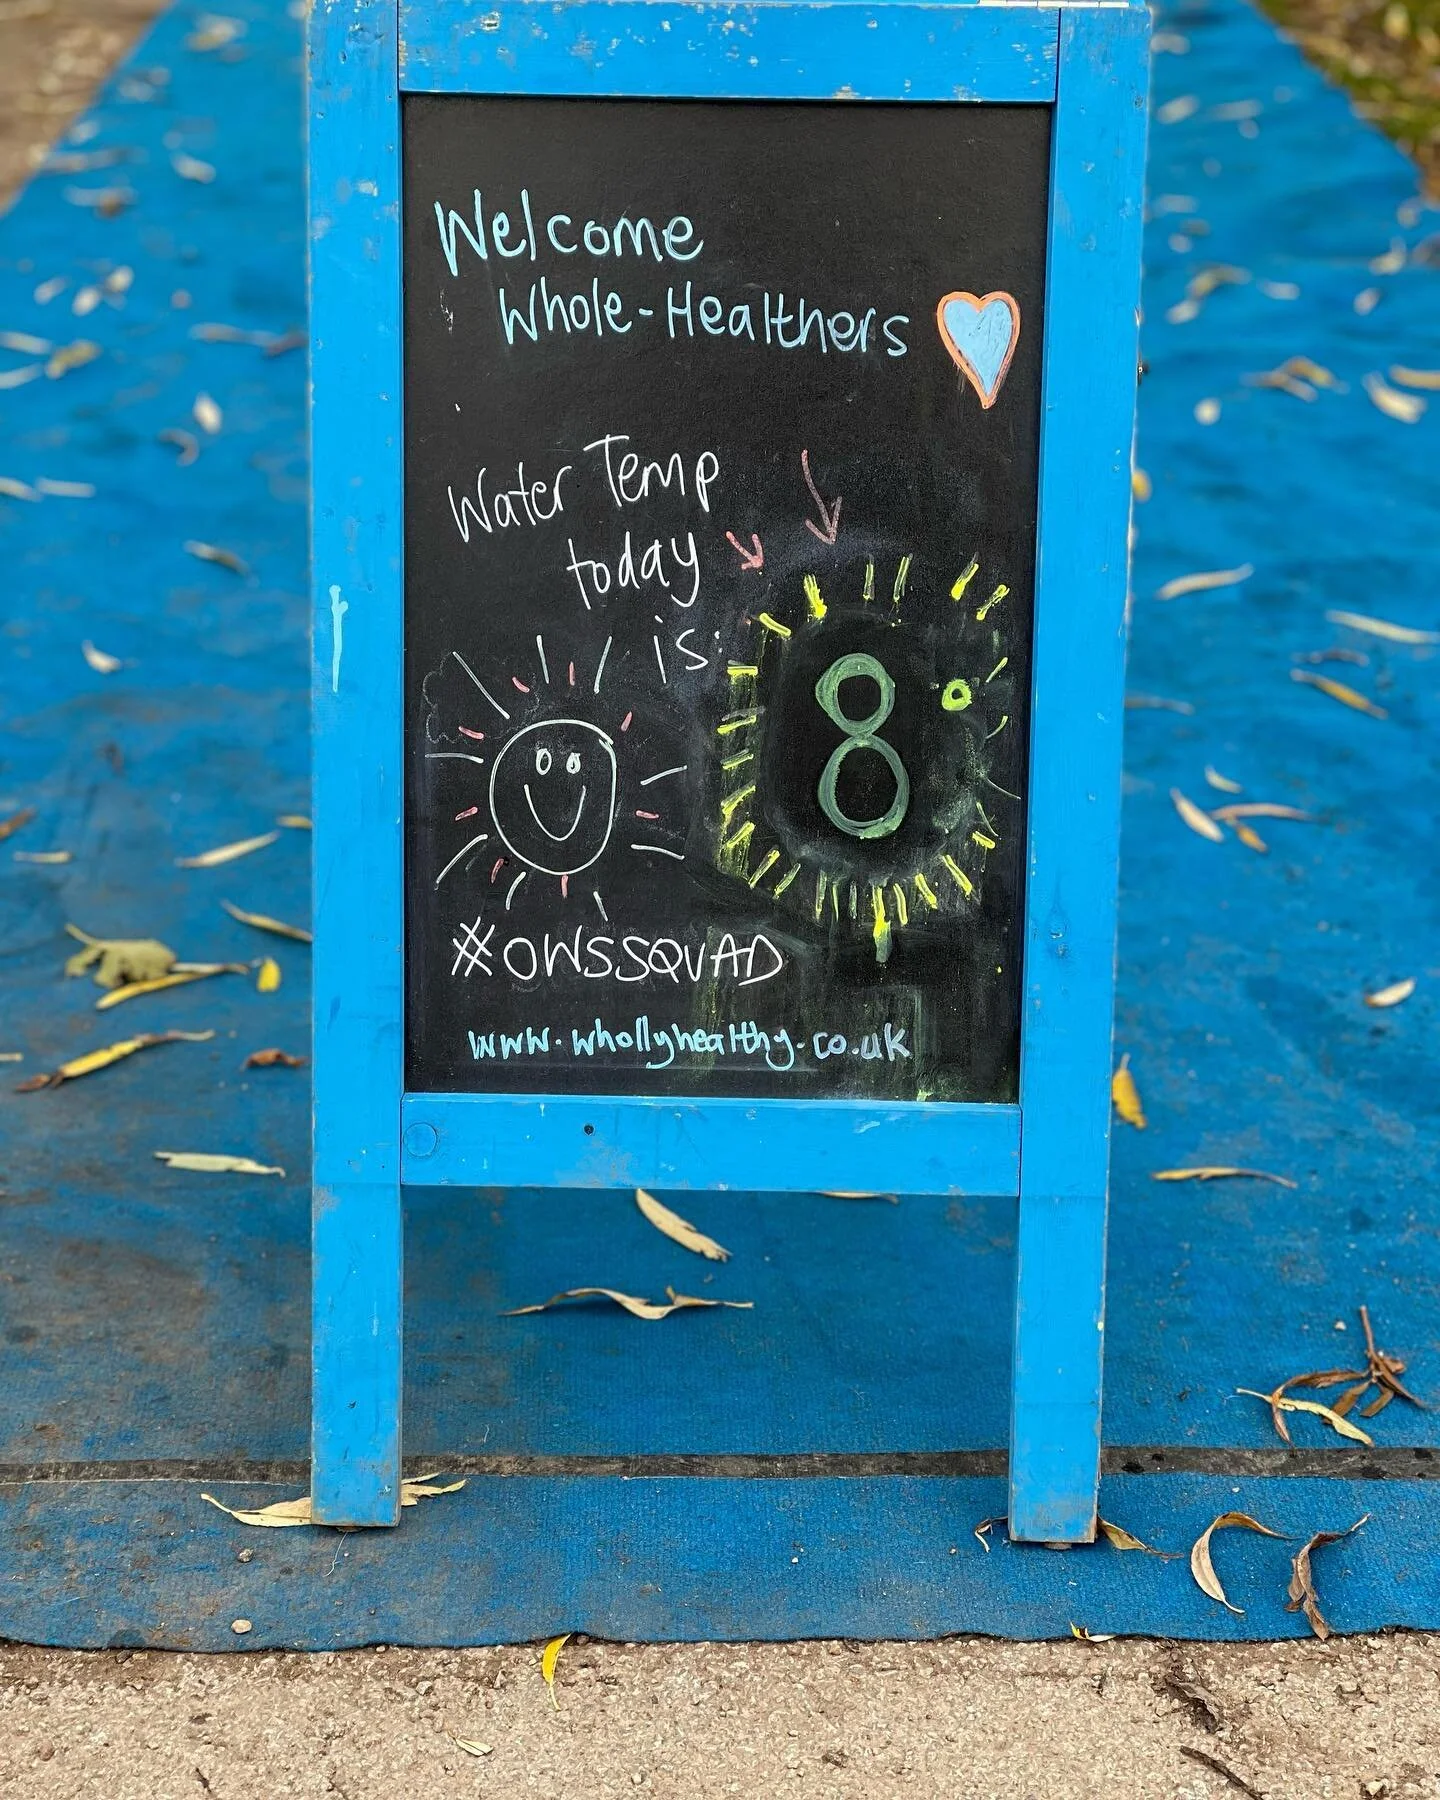 Welcome
Whole-Healthers
Water Temp
today
is:
8°
#OWSSQUAD
www.whollyhealthy.co.uk